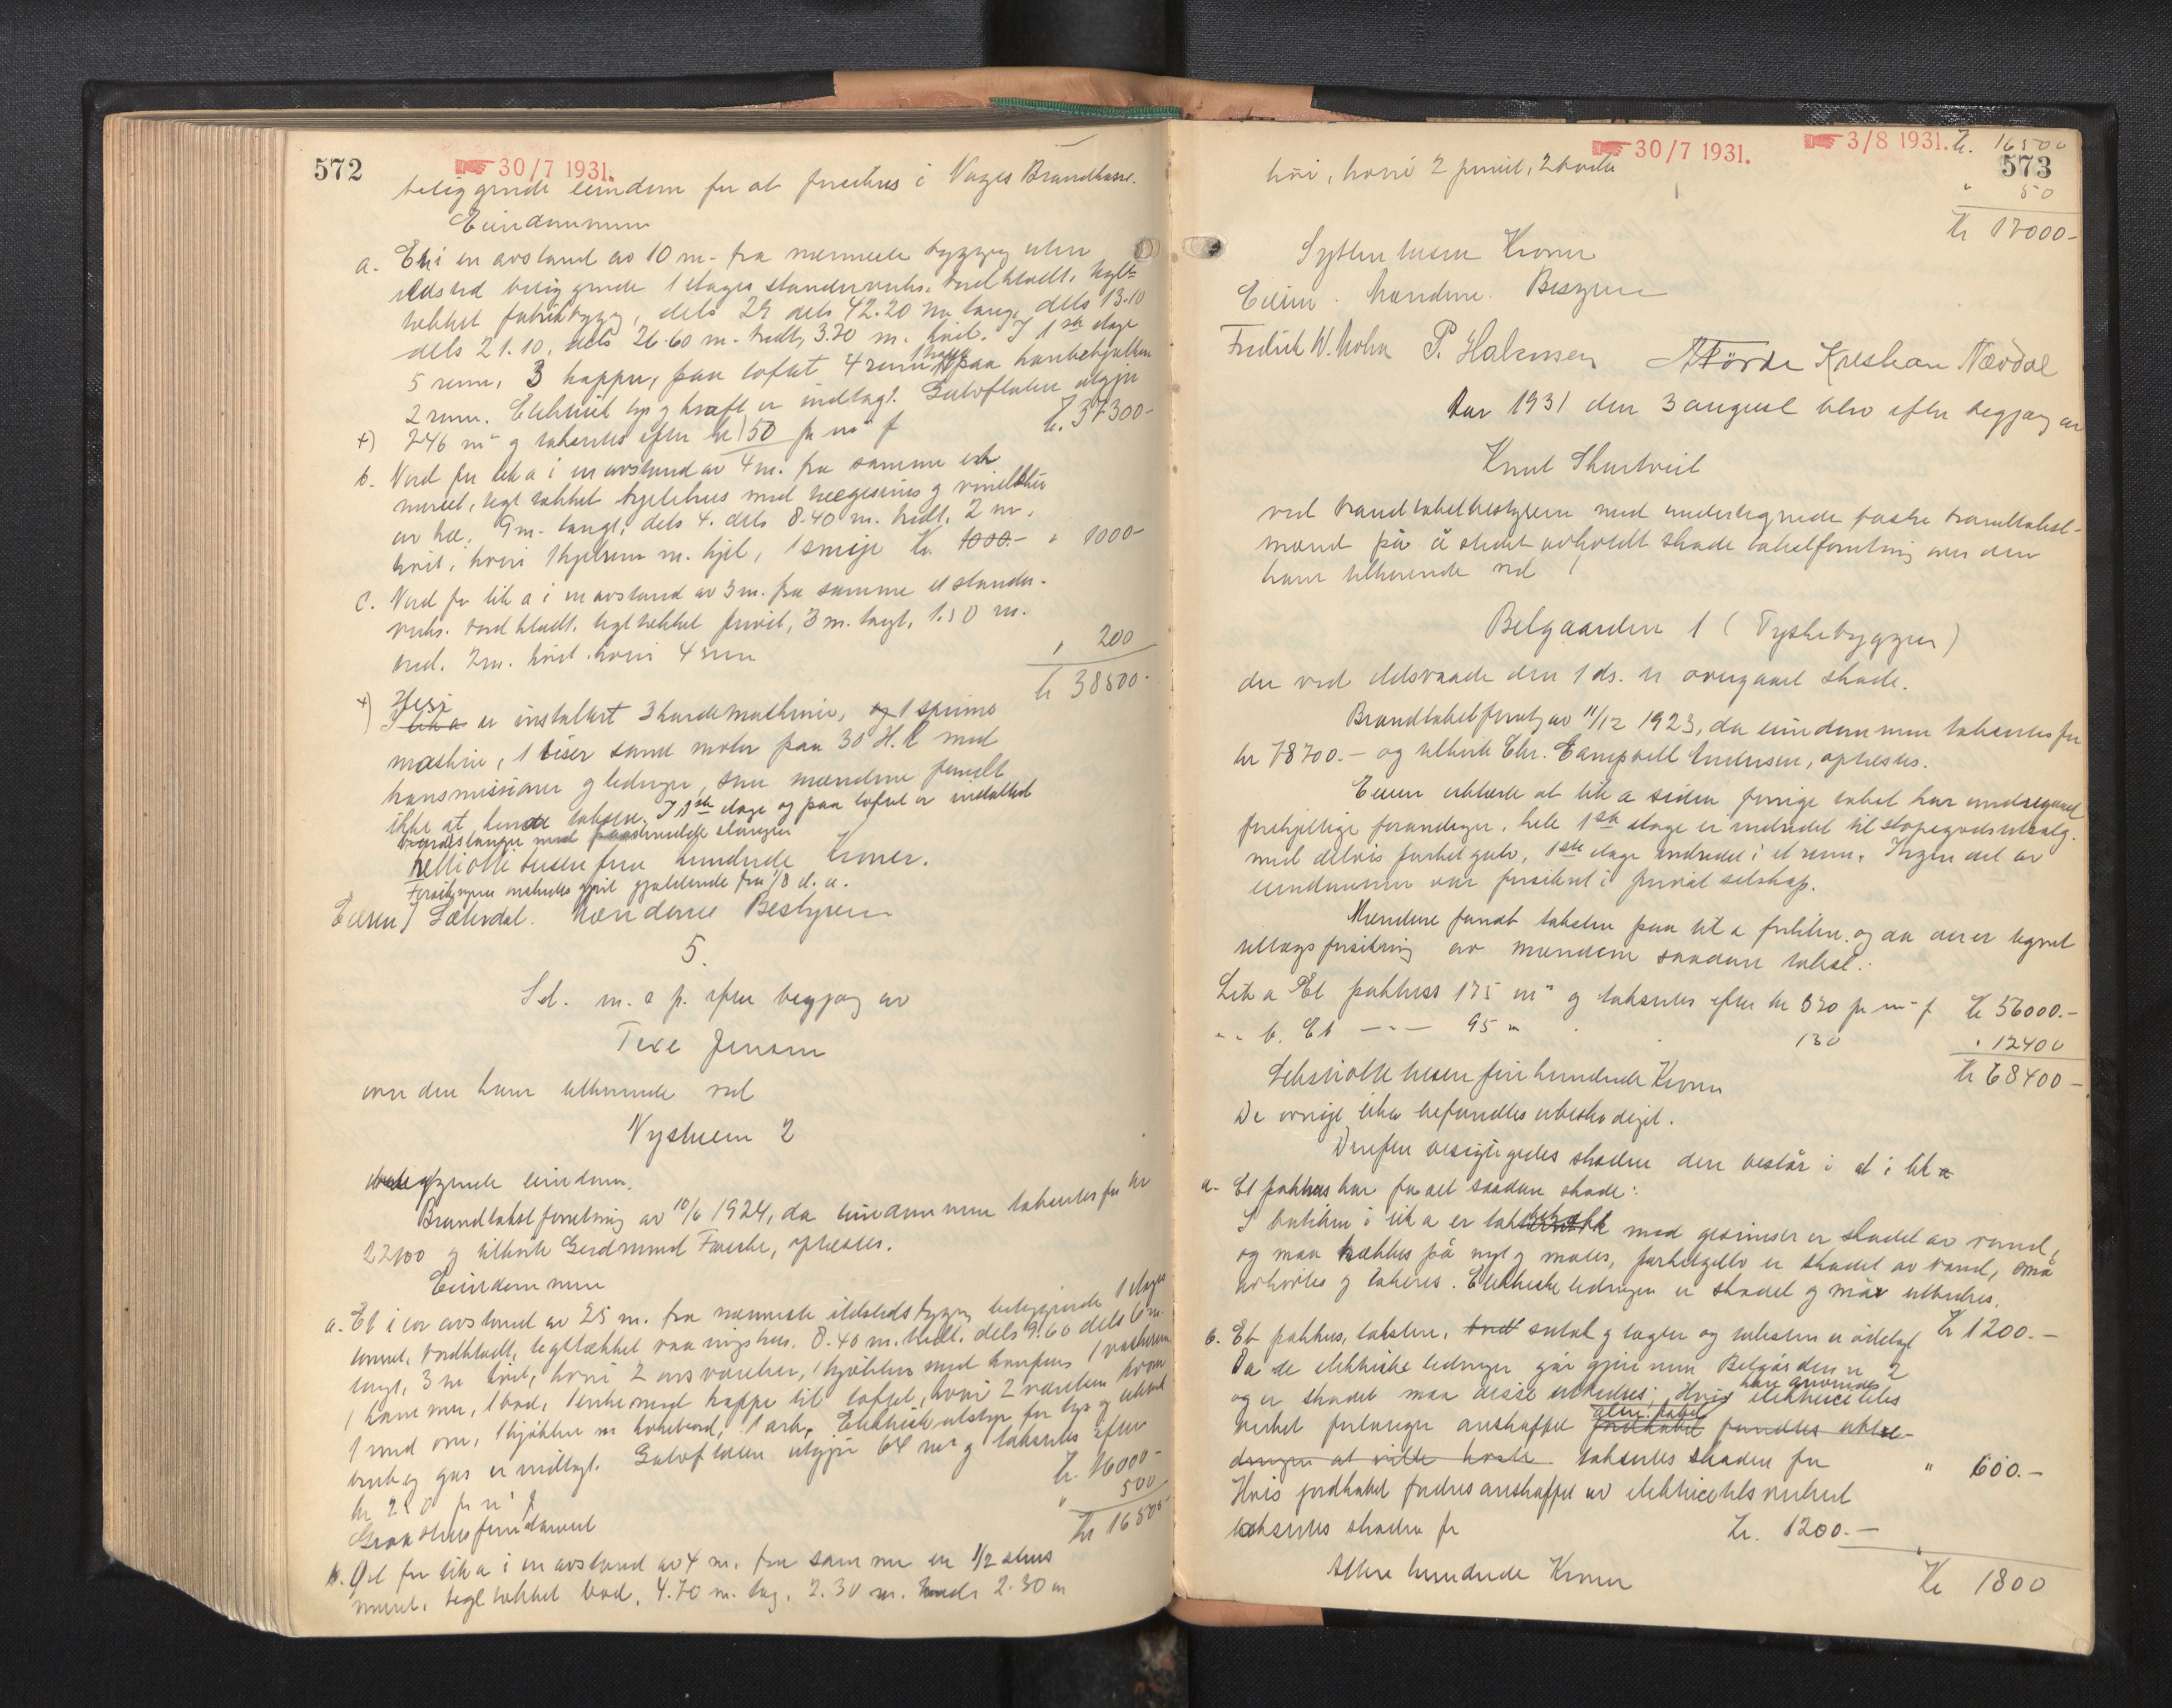 572
30/7 1931.
beliggende eiendom for at forsikres i Norges Brandkasse.
Eiendommen
a. Et i en avstand av 10 m. fra nærmeste bygging uten
ildsted beliggende 1 etages standerverks, bordklædt, tegl-
tækket fabrikbygg, dels 22 dels 42.20 m. lang, dels 13.10
dels 21.10, dels 26.60 m. bredt, 3.70 m. høit. I 1ste etage
5 rum, 3 trapper, paa loftet 4 rum, 1 trappe paa hanebjelken
2 rum. Elektrisk lys og kraft er indlagt. Gulvflaten utgjør
+) 746 m² og takseres efter kr 50 pr m² f kr. 37300-
b. Nord for lit a i en avstand av 4 m. fra samme et
muret, tegltækket kjelehus med
av træ, 9 m. langt, dels 4. dels 8.40 m. bredt, 2 m.
høit, hvori 1 kjelrum m. kjel, 1 smije Kr. 1000.- " 1000-
c. Nord for lit a i en avstand av 3 m. fra samme et stander-
verks. bordklædt. tegltækket privet, 3 m. langt, 1.50 m.
bred. 2 m. høit. hvori 4 rum " 200
kr 38500-
+) Heri
I lit a er installert 3 kardemaskiner, og 1 spinne
maskine, 1 samt motor paa 30 H.K med
transmissioner og ledninger, som mændene fandt
ikke at kunde taksere. I 1ste etage og paa loftet er indlagt
brandslanger med
tretti otte tusen fem hundrede Kroner.
Forsikringen ønskes gjort gjældende fra 1/8 d. a.
Eieren J Sætersdal. Mændene Bestyreren
5.
S.d. m. s. p. efter begjæring av
Jensen
over den ham tilhørende ved
Nystuen 2
beliggende eiendom.
Brandtakstforretning av 10/6 1924, da eiendommen takseres for kr
22700 og tilhørte Gerdmund Farestve, oplæstes.
Eiendommen
a. Et i en avstand av 25 m. fra nærmeste ildsteds bygging beliggende 1 etages
tømret, bordklædt, tegltækket vaaningshus. 8.40 m. bredt. dels 9.60 dels 6 m.
langt, 3 m høit, hvori 2 ovsværelser, 1 kjøkken med komfur, 1 vaskerum
1 kammer, 1 bod, 1 entre med trappe til loftet, hvori 2 værelser hvorav
1 med ovn, 1 kjøkken m kokebord, 1 ark. Elektrisk utstyr for lys og
bruk og gas er indlagt. Gulvflaten utgjør 64 m² og takseres efter
kr 250 pr m² f kr. 16000-
Graastensfundament " 500
kr 16500-
b. Øst for lit a i en avstand av 4 m. fra samme en 1/2 stens
muret, tegltækket bod, 4.70 m. lang, 2.30 m. bred. 2.30 m
30/7 1931.
3/8 1931.
573
kr. 16500
høi, hvori 2 privet, 2 boder " 50
kr 17000-
Sytten tusen Kroner
Eieren. Mændene. Bestyreren
Fredrik W. Mohn P. Hakonsen A Førde Kristian Nævdal
Aar 1931 den 3 august blev efter begjæring av
Knut Skurtveit
ved brandtakstbestyreren med undertegnede faste brandtakst-
mænd på å stedet avholdt skade takstforretning over den
ham tilhørende ved
Belgaarden 1 (Tyskebryggen)
der ved ildsvaade den 1 ds. er overgaaet skade.
Brandtakstforretn av 11/12 1923, da eiendommen takseres for
kr 78700.- og tilhørte Chr. Campbell Andersen, oplæstes.
Eieren erklærte at lit a siden forrige takst har undergaaet
forskjellige forandringer, hele 1ste etage er indredet til stapegodsutsalg.
med delvis parketgulv, 1ste etage indredet i et rum. Ingen del av
eiendommen var forsikret i privat selskap.
Mændene fandt taksten paa lit a for liten. og da der er tegnet
tillægsforsikring av mændene saadan takst:
Lit a Et pakhus 175 m² og takseres efter kr 320 pr m² f kr 56000.-
" - b. Et — " — 95 " 130 " 12400
kr 68400-
Sekstiotte tusen fire hundrede Kroner
De øvrige litra befandtes ubeskadiget.
Derefter besigtigedes skaden der består i at i lit a
a. Et pakhus har faaet saadan skade:
I butikken i lit a er med gesimser er skadet av vand,
og maa trækkes på nyt og males, parketgulv er skadet av vand, må
avhøvles og lakeres. Elektriske ledninger er skadet og må utbedres. kr 1200.-
b. Et pakhus, taksten, bord sutak og lægter og taksten er ødelagt
Da de elektriske ledninger går gjennem Belgården nr 2
og er skadet maa disse utbedres. Hvis elektricitets
kan anvendes
verket forlanger anskaffet jordkabel fandtes utbe-
dringen at ville koste takseres skaden for " 600.-
Hvis jordkabel fordres anskaffet av elektricitetsverket
takseres skaden for kr. 1200.-
Atten hundrede Kroner kr 1800